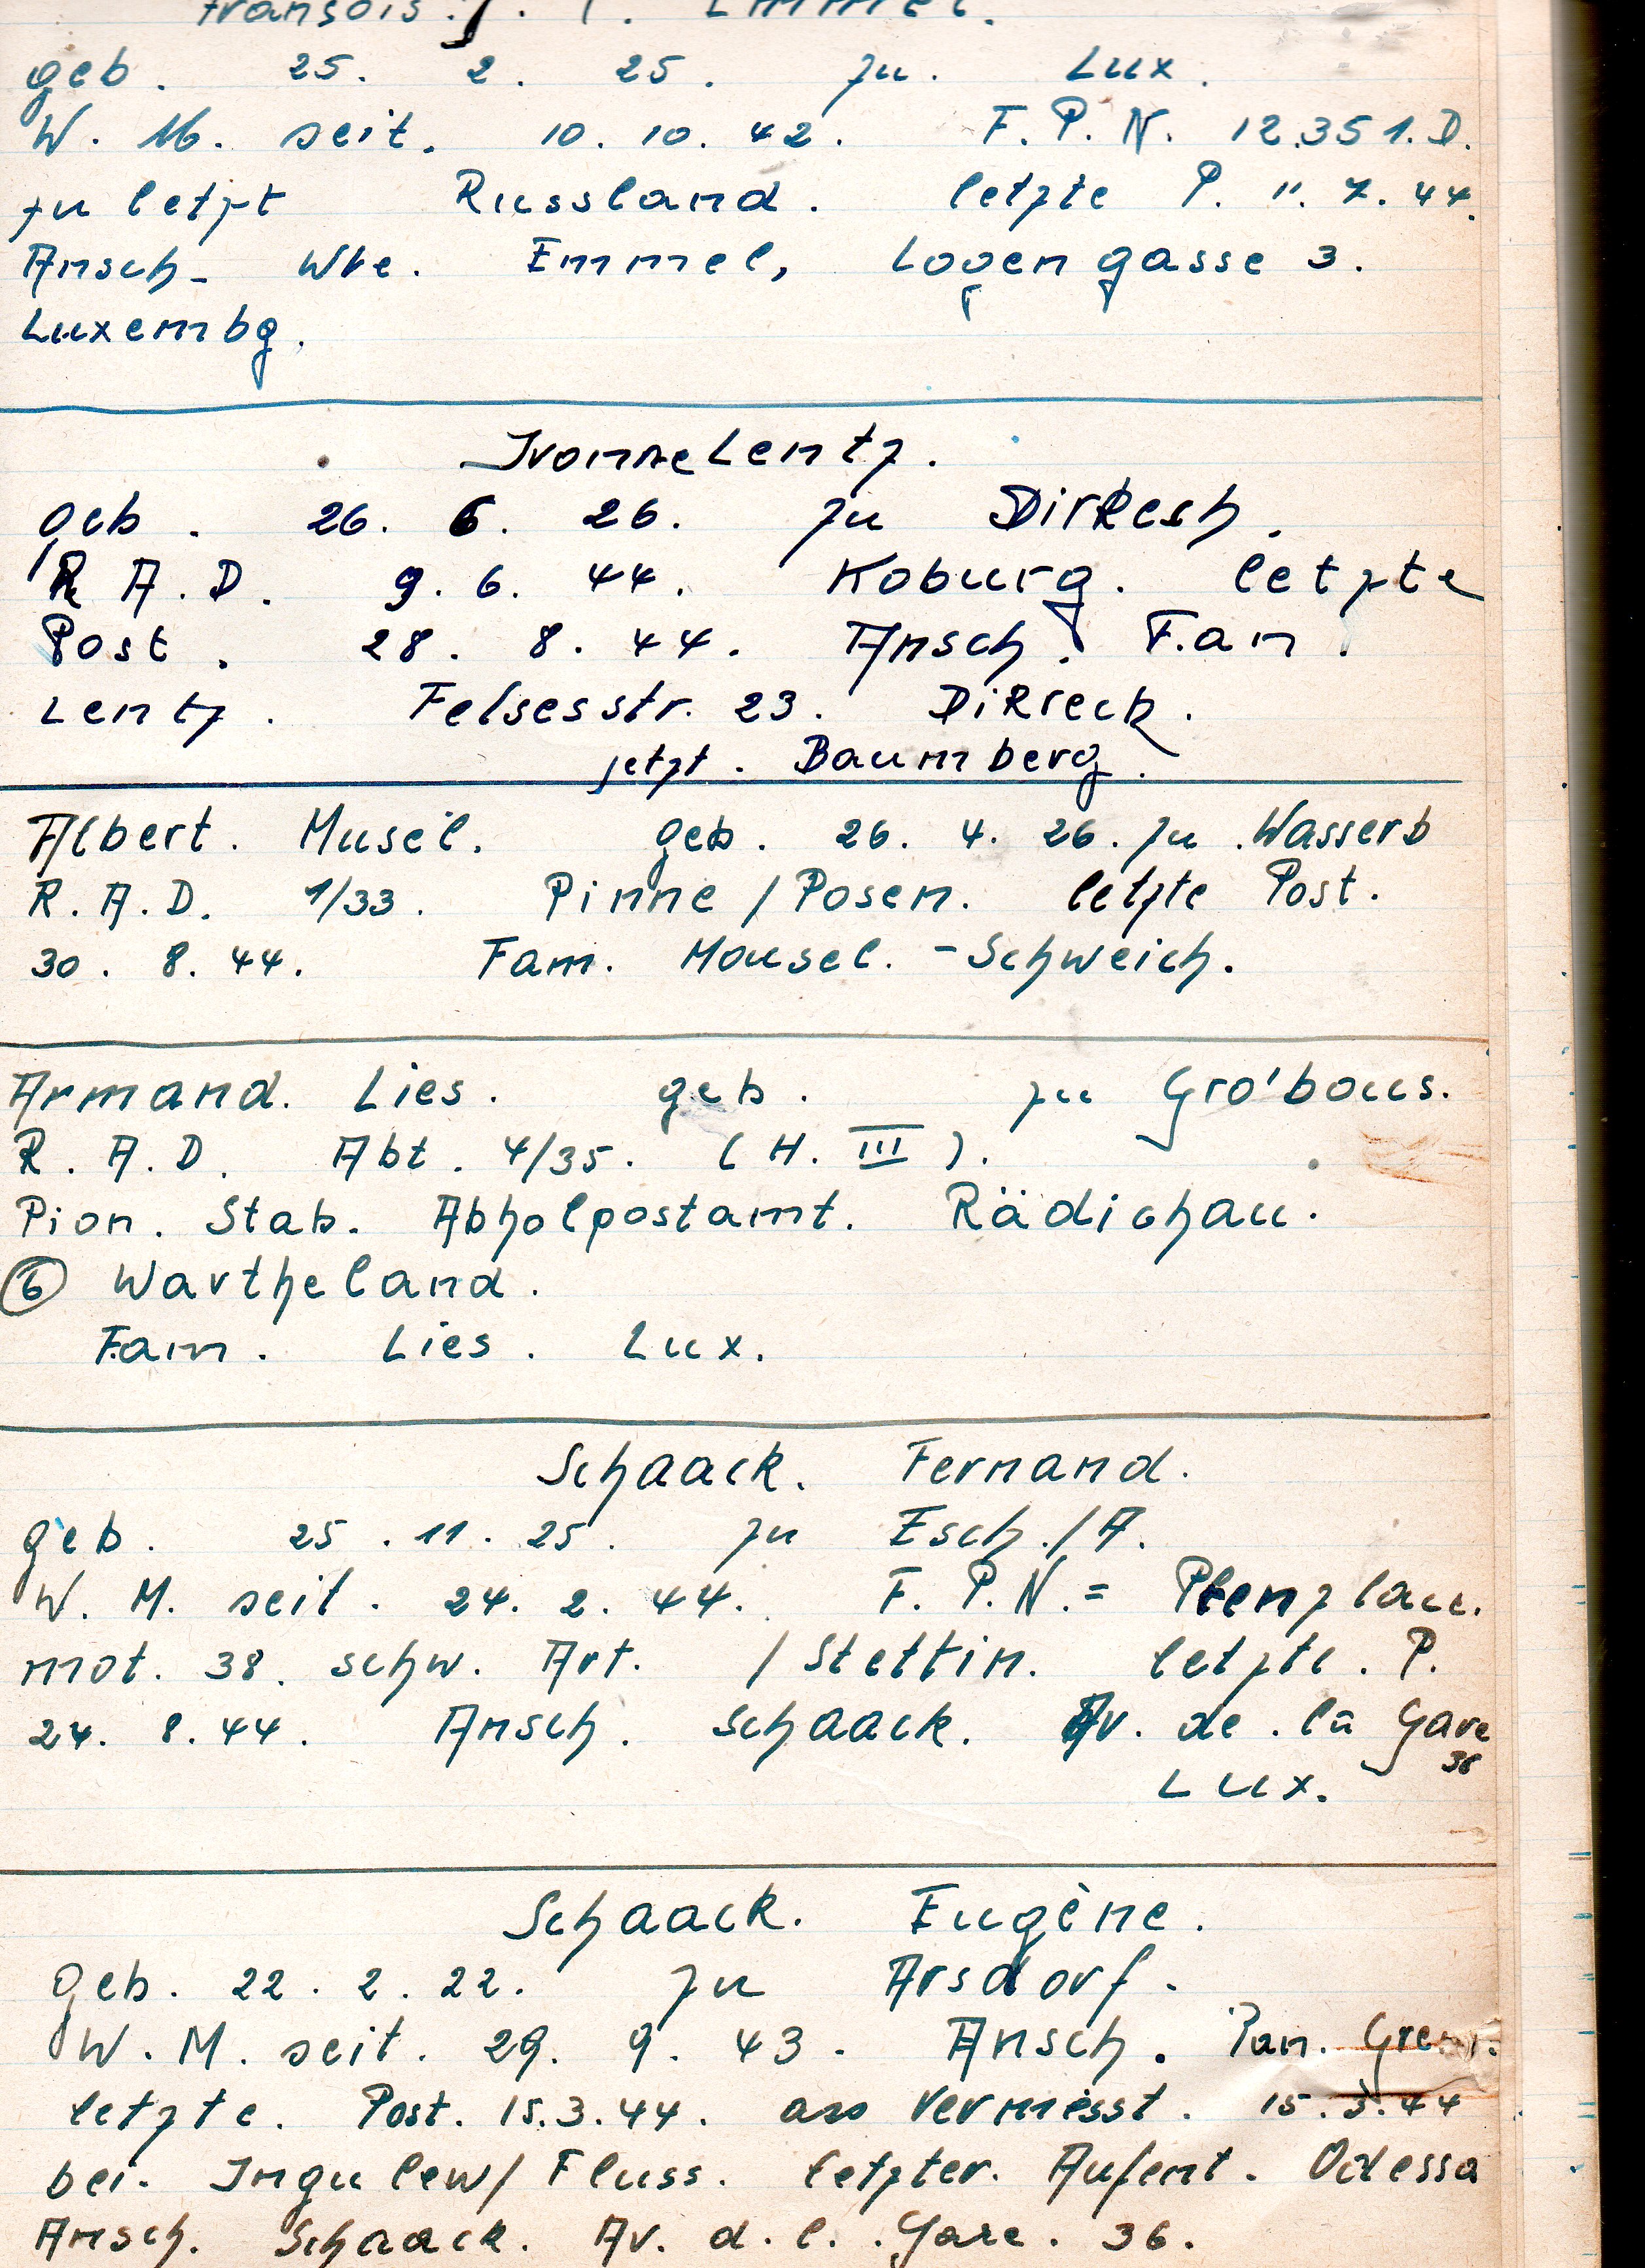 François. Emmel.
geb. 25. 2. 25. zu. Lux.
W. M. seit. 10. 10. 42. F. P. N. 12.351.D.
zu letzt Russland. letzte P. 11. 7. 44.
Ansch- Wve. Emmel, Logengasse 3.
Luxembg.
Ivonne Lentz.
geb. 26. 6. 26. zu Dirkesh.
R A. D. 9. 6. 44. Koburg. letzte
Post. 28. 8. 44. Ansch. Fam.
Lentz. Felsesstr. 23. Dikreck.
jetzt. Baumberg.
Albert. Musel. geb. 26. 4. 26. zu. Wasserb
R. A. D. 1/33. Pinne / Posen. letzte Post.
30. 8. 44. Fam. Mousel. - Schweich.
Armand. Lies. geb. zu Gro'bous.
R. A. D. Abt. 4/35. (H. III).
Pion. Stab. Abholpostamt. Rädichau.
6 Wartheland.
Fam. Lies. Lux.
Schaack. Fernand.
geb. 25. 11. 25. zu Esch./A.
W. M. seit. 24. 2. 44. F. P. N. = Prenzlau.
mot. 38. schw. Art. / Stettin. letzte. P.
24. 8. 44. Ansch. Schaack. Av. de. la Gare
38
Lux.
Schaack. Eugène.
Geb. 22. 2. 22. zu Arsdorf.
W. M. seit. 29. 9. 43. Ansch. Pan.
letzte. Post. 15.3.44. als vermisst. 15. 3. 44
bei. Ingulew/ Fluss. letzter. Aufent. Odessa
Ansch. Schaack. Av. d. l. Gare. 36.